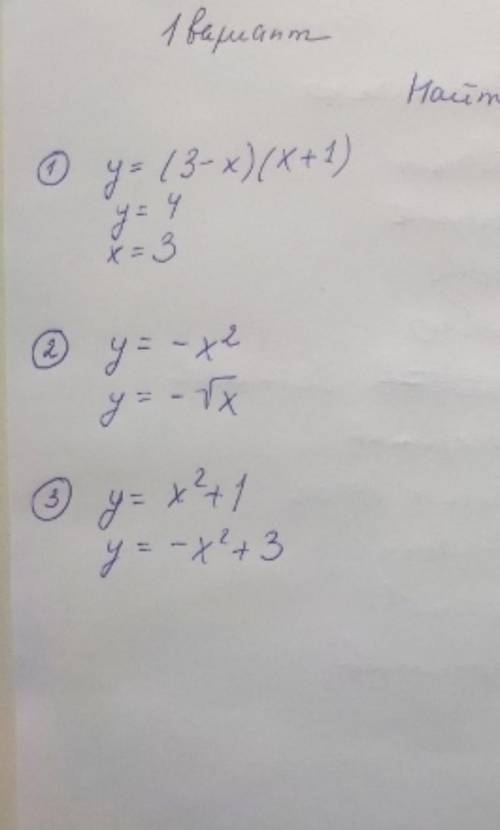 1 вариант
Найт
① y = (3-x)(x+1)
y = 4
x = 3
② y = -x²
y = -√x
③ y = x²+1
y = -x²+3